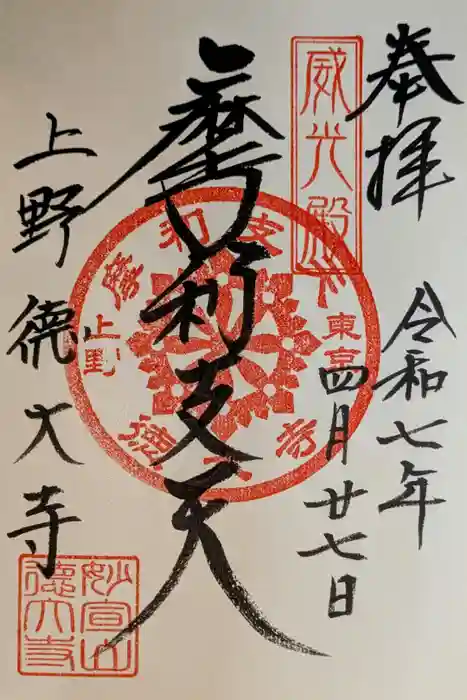 奉拝
令和七年
四月廿七日
威光殿
摩利支天
摩利支天
東京
上野
徳大寺
上野 徳大寺
妙宣山
徳大寺